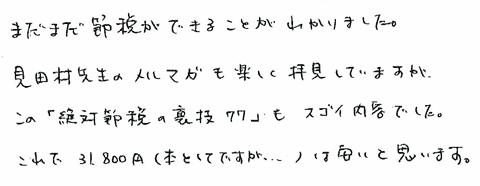 まだまだ節税ができることがわかりました。
見田村先生のメルマガも楽しく拝見していますが、
この「絶対節税の裏技77」もスゴイ内容でした。
これで31,800円(本としてですが…)は安いと思います。